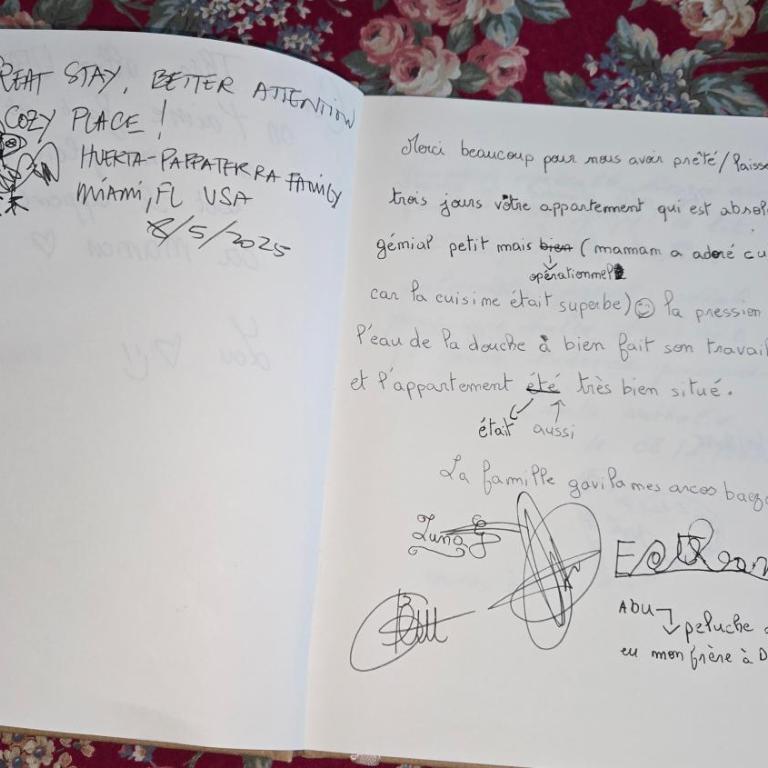 REAT STAY, BETTER ATTENTION
COZY PLACE!
HUERTA-PAPPATERRA FAMILY
MIAMI, FL USA
8/5/2025
Merci beaucoup pour nous avoir prêté/laissé
trois jours vôtre appartement qui est absol
génial petit mais bien (mamam a adoré cu
opérationnel
car la cuisine était superbe) la pression
l'eau de la douche à bien fait son travail
et l'appartement été très bien situé.
était aussi
La famille gavilanes arcos
Luna
ADU
peluche
eu mon frère à D